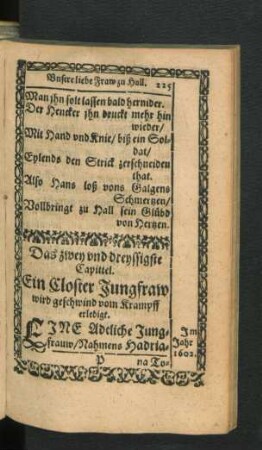 Unsere liebe Fraw zu Hall.
225
Man jhn solt lassen bald hernider.
Der Hencker jhn druckt mehr hin
wieder/
Mit Hand vnd Knie/ biß ein Sol-
dat/
Eylends den Strick zerschneiden
that.
Also Hans loß vons Galgens
Schmertzen/
Vollbringt zu Hall sein Glübd
von Hertzen.
Das zwey vnd dreyssigste
Capittel.
Ein Closter Jungfraw
wird geschwind vom Krampff
erledigt.
EINE Adeliche Jung-
frauw/ Nahmens Hadria-
Im
Jahr
1602.
P
na To-